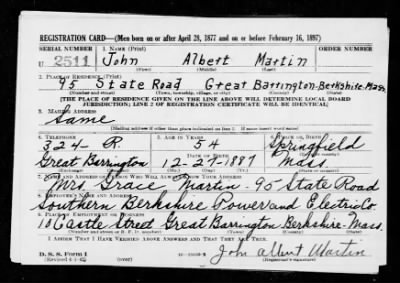 REGISTRATION CARD—(Men born on or after April 28, 1877 and on or before February 16, 1897)
SERIAL NUMBER 1. NAME (Print) ORDER NUMBER
U 2511 John Albert Martin
(First) (Middle) (Last)
2. PLACE OF RESIDENCE (Print)
95 State Road Great Barrington-Berkshire-Mass
(Number and street) (Town, township, village, or city) (County) (State)
[THE PLACE OF RESIDENCE GIVEN ON THE LINE ABOVE WILL DETERMINE LOCAL BOARD
JURISDICTION; LINE 2 OF REGISTRATION CERTIFICATE WILL BE IDENTICAL]
3. MAILING ADDRESS
Same
[Mailing address if other than place indicated on line 2. If same insert word same]
4. TELEPHONE 5. AGE IN YEARS 6. PLACE OF BIRTH
324-R. 54 Springfield
DATE OF BIRTH
Great Barrington 12-27-1887 Mass.
7. NAME AND ADDRESS OF PERSON WHO WILL ALWAYS KNOW YOUR ADDRESS
Mrs Grace Martin-95 State Road
8. EMPLOYER'S NAME AND ADDRESS
Southern Berkshire Power and Electric Co
9. PLACE OF EMPLOYMENT OR BUSINESS
10 Castle Street Great Barrington-Berkshire-Mass.
(Number and street or R. F. D. number) (Town) (County) (State)
I AFFIRM THAT I HAVE VERIFIED ABOVE ANSWERS AND THAT THEY ARE TRUE.
D. S. S. Form 1 John Albert Martin
(Revised 4-1-42) (Registrant's signature)